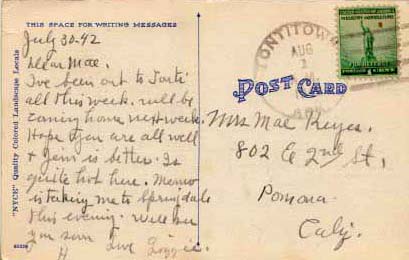 THIS SPACE FOR WRITING MESSAGES
July 30-42
Dear Mae.
I've been out to
all this week. will be
coming home next week.
Hope you are all well
+ Jim is better. Is
quite hot here.
is taking me to Springdale
this evening. Will see
you soon
Love
"NYCE" Quality Colored Landscape Locals
TONTITOWN
AUG
1
ARK
UNITED STATES OF AMERICA
INDUSTRY AGRICULTURE
FOR DEFENSE
1 CENTS
POST CARD
Mrs Mae Keyes.
802 E 2nd St,
Pomona
Calif.